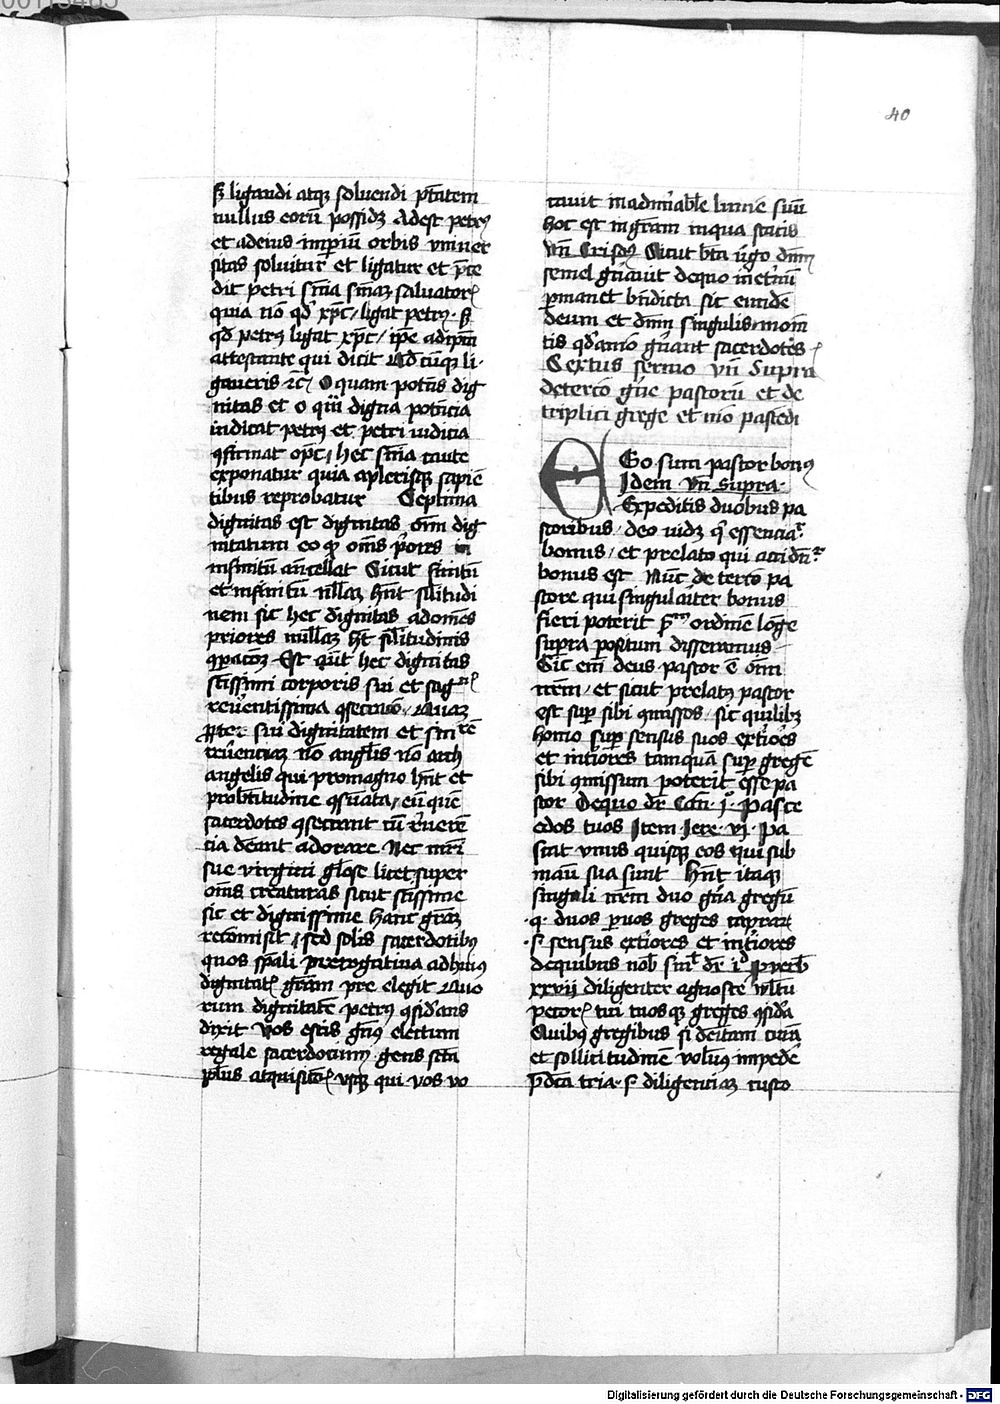 40
ligandi atqꝫ soluendi ptātem
nullus eorū possidꝫ Adest petrꝰ
et adeius imꝑiū orbis vniuer
sitas soluitur et ligatur et p̄ce
dit petri snīa snīaꝫ saluatorꝭ
quia nō qd' xp̄c / ligat petrꝰ
qd' petrꝰ ligat xp̄c / ip̄e
attestante qui dicit Qd'cūqꝫ li
gaueris ⁊c̄ / O quam potēs dig
nitas et o digna potēcia
indicat petrꝰ et petri iudicia
ꝯfirmat xp̄c / hec snīa caute
exponatur quia aplerisqꝫ sapiē
tibus reprobatur Septima
dignitas est dignitas om̄ dig
nitatum eo ꝙ om̄s p̄ores in
infinitū Sicut finitū
et infinitū nllaꝫ hn̄t silitudi
nem sic hec dignitas adom̄es
priores nullaꝫ ht silitudinis
Est aūt hec dignitas
sctissimi corporis sui et
reuerentissima ꝯsecracō / Quaꝫ
ꝓpter sui dignitatem et
reuenciaꝫ nō angl̄is nō arch
angelis qui promagno hn̄t et
ꝓbtitudine / eū quē
sacerdotes ꝯsecrant cū reuerē
cia deant adorare Nec mr̄i
sue virgini gl̄ose licet super
om̄s creaturas sicut sctissime
sic et dignissime hanc gr̄aꝫ
recōmisit / sed solis sacerdotibꝰ
quos spāli prerogatina adhuiꝰ
dignitatꝭ gr̄am pre elegit Quo
rum dignitatē petrus ꝯsid'ans
dixit Vos estis gn̄ꝰ electum
regale sacerdocium gens sctā
pl̄us atquisicōꝭ vsqꝫ qui vos vo
cauit inadmirabile lumē suū
hoc est ingr̄am inqua statis
Vn̄ Crisosꝰ Sicut bt̄a v̄go dnm̄
semel gn̄auit dequo inet'nū
ꝑmanet bn̄dicta sic eundē
deum et dnm̄ singulis mom̄
tis sacerdotes
Sextus sermo vn̄ Supra
detercō gn̄e pastorū et de
triplici grege et mō pascēdi
Ego sum pastor bonꝰ
Idem vn̄ supra
Expeditis duobus pa
storibus / deo vidꝫ qͥ
bonus / et prelato qui
bonus est Nūc de tercō pa
store qui singulariter bonus
fieri poterit ordinē lōge
supra positum disseramus
Sic em̄ deus pastor ē om̄
crēm / et sicut prelatꝰ pastor
est suꝑ sibi ꝯmissos / sic quilibꝫ
homo suꝑ sensus suos ext'iores
et int'iores tamquā suꝑ gregē
sibi ꝯmissum poterit esse pa
stor Dequo dr̄ Can̄ jͦ Pasce
edos tuos Item Iere vj Pa
scat vnus quisqꝫ eos qui sub
manū sua sunt Hn̄t itaqꝫ
singuli crēm duo gn̄a gregū
q duos ꝑuos greges capraꝝ
s sensus ext'iores et int'iores
dequibus nob dr̄ ꝓuerb
xxvij diligenter agnosce vl̄tū
pecorꝭ tui tuosqꝫ greges ꝯsid'a
Quibꝰ gregibus si debitam curā
et sollicitudinē volūꝰ impēde
p̄dcā tria s diligenciaꝫ custo
Digitalisierung gefördert durch die Deutsche Forschungsgemeinschaft - DFG